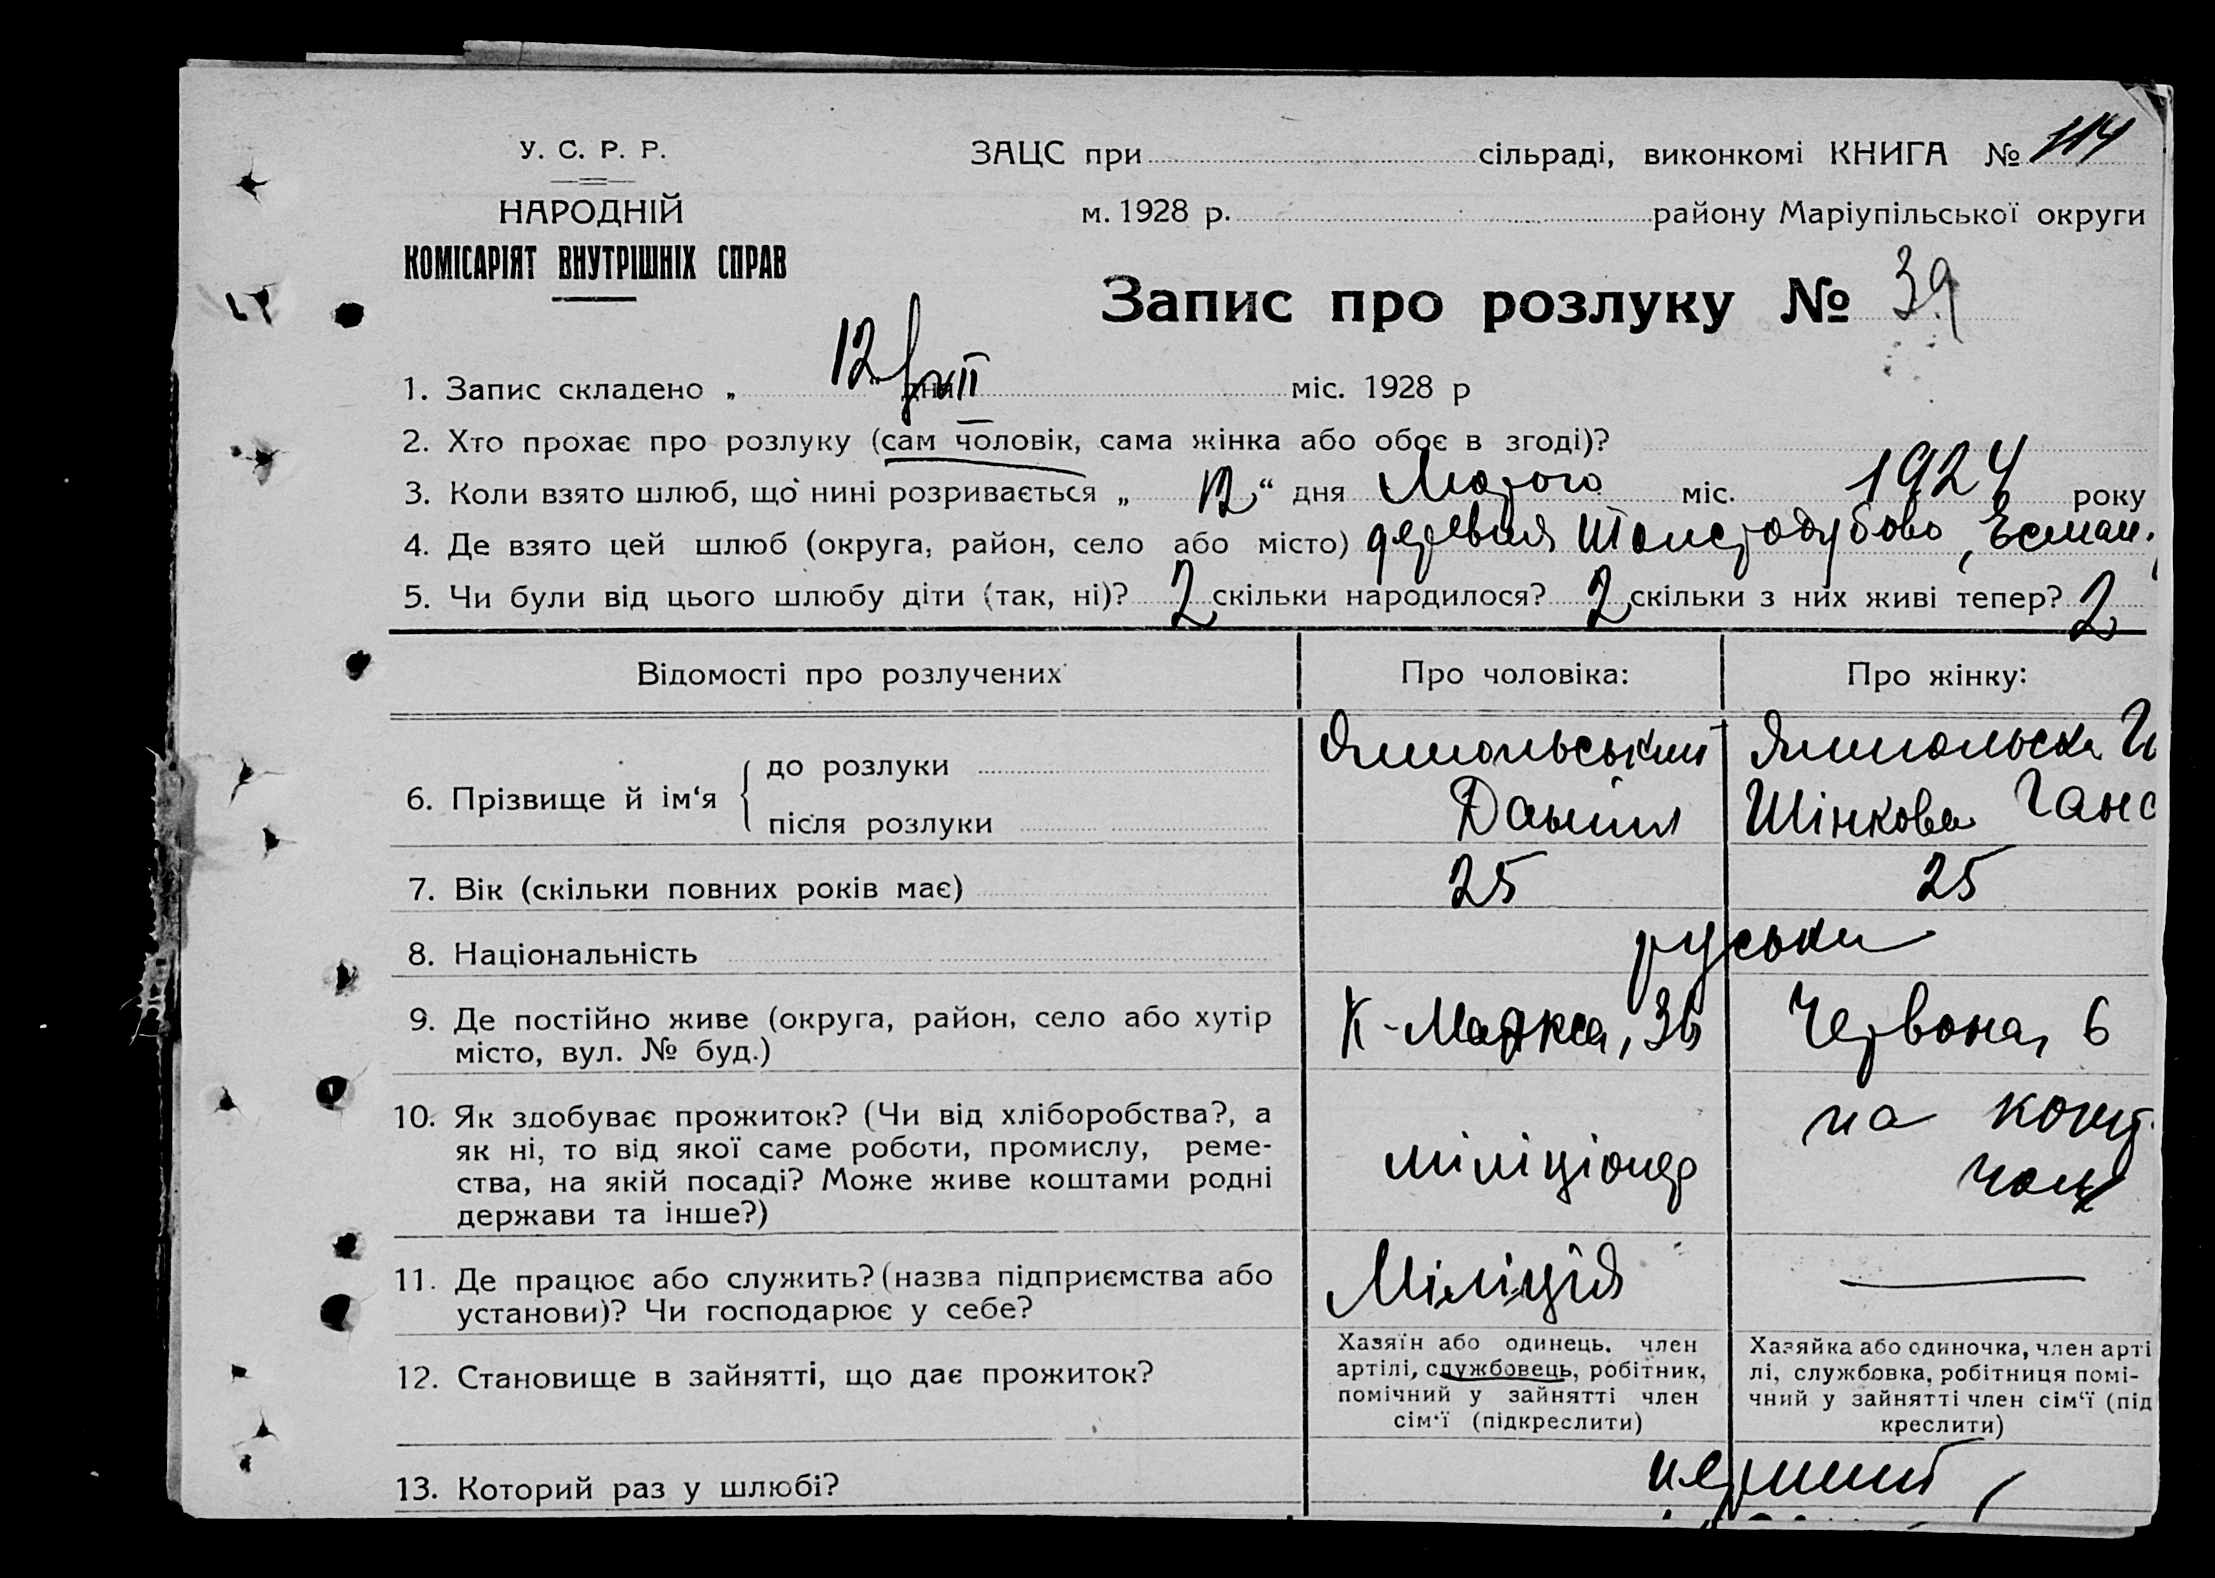 У. С. Р. Р.
НАРОДНІЙ
КОМІСАРІЯТ ВНУТРІШНІХ СПРАВ
ЗАЦС при сільраді, виконкомі КНИГА № 114
м. 1928 р. району Маріупільської округи
Запис про розлуку № 39
1. Запис складено „ 12 “ дня міс. 1928 р
2. Хто прохає про розлуку (сам чоловік, сама жінка або обоє в згоді)?
3. Коли взято шлюб, що нині розривається „ 12 “ дня Лютого міс. 1924 року
4. Де взято цей шлюб (округа, район, село або місто) деревня Толстодубово, Есман.
5. Чи були від цього шлюбу діти (так, ні)? 2 скільки народилося? 2 скільки з них живі тепер? 2
Відомості про розлучених Про чоловіка: Про жінку:
6. Прізвище й ім‘я
до розлуки
Ямпольський Ямпольска
після розлуки
Даніил Шінкова Ганс
7. Вік (скільки повних років має) 25 25
8. Національність руськи
9. Де постійно живе (округа, район, село або хутір
місто, вул. № буд.)
К-Маркса, 36 Червона, 6
10. Як здобуває прожиток? (Чи від хліборобства?, а
як ні, то від якої саме роботи, промислу, реме-
ства, на якій посаді? Може живе коштами родні
держави та інше?)
міліціонер
на кошт.
чол
11. Де працює або служить? (назва підприємства або
установи)? Чи господарює у себе?
Міліція
12. Становище в зайнятті, що дає прожиток?
Хазяїн або одинець, член
артілі, службовець, робітник,
помічний у зайнятті член
сім‘ї (підкреслити)
Хазяйка або одиночка, член арті
лі, службовка, робітниця помі-
чний у зайнятті член сім‘ї (під
креслити)
13. Которий раз у шлюбі? перший